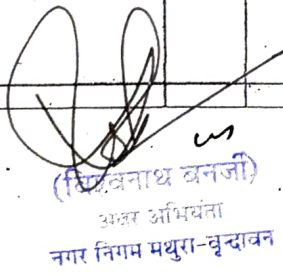 (विश्वनाथ बनर्जी)
अवर अभियंता
नगर निगम मथुरा-वृन्दावन